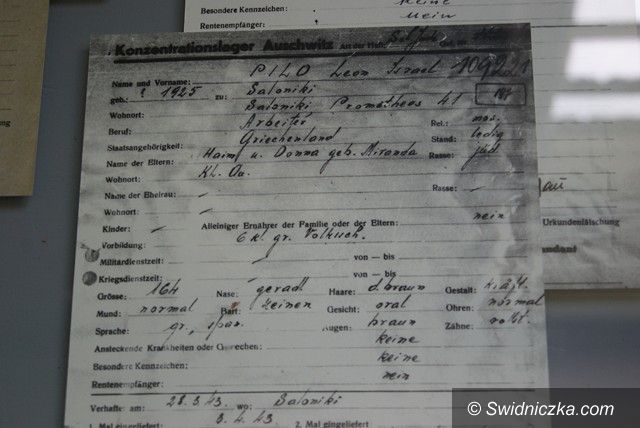 Besondere Kennzeichen: keine
Rentenempfänger: nein
Konzentrationslager Auschwitz Art der Haft:
PILO Leon Israel
Name und Vorname:
geb.: ? 1925 zu: Saloniki
Wohnort: Saloniki Prometheos 41
Beruf: Arbeiter Rel.: mos.
Staatsangehörigkeit: Griechenland Stand: ledig
Name der Eltern: Haim u. Donna geb. Miranda Rasse: jüd
Wohnort: Kl. Au.
Name der Ehefrau: Rasse:
Wohnort:
Kinder: Alleiniger Ernährer der Familie oder der Eltern: nein
Vorbildung: 6 kl. gr. Volksch.
Militärdienstzeit: von — bis
Kriegsdienstzeit: von — bis
Grösse: 164 Nase: gerad Haare: d.braun Gestalt: kräft.
Mund: normal Bart: keinen Gesicht: oval Ohren: normal
Sprache: gr., span. Augen: braun Zähne:
Ansteckende Krankheiten oder Gebrechen: keine
Besondere Kennzeichen: keine
Rentenempfänger: nein
Verhafte am: 28.3.43. wo: Saloniki
1. Mal eingeliefert 2. Mal eingeliefert
Urkundenfälschung
© Swidniczka.com